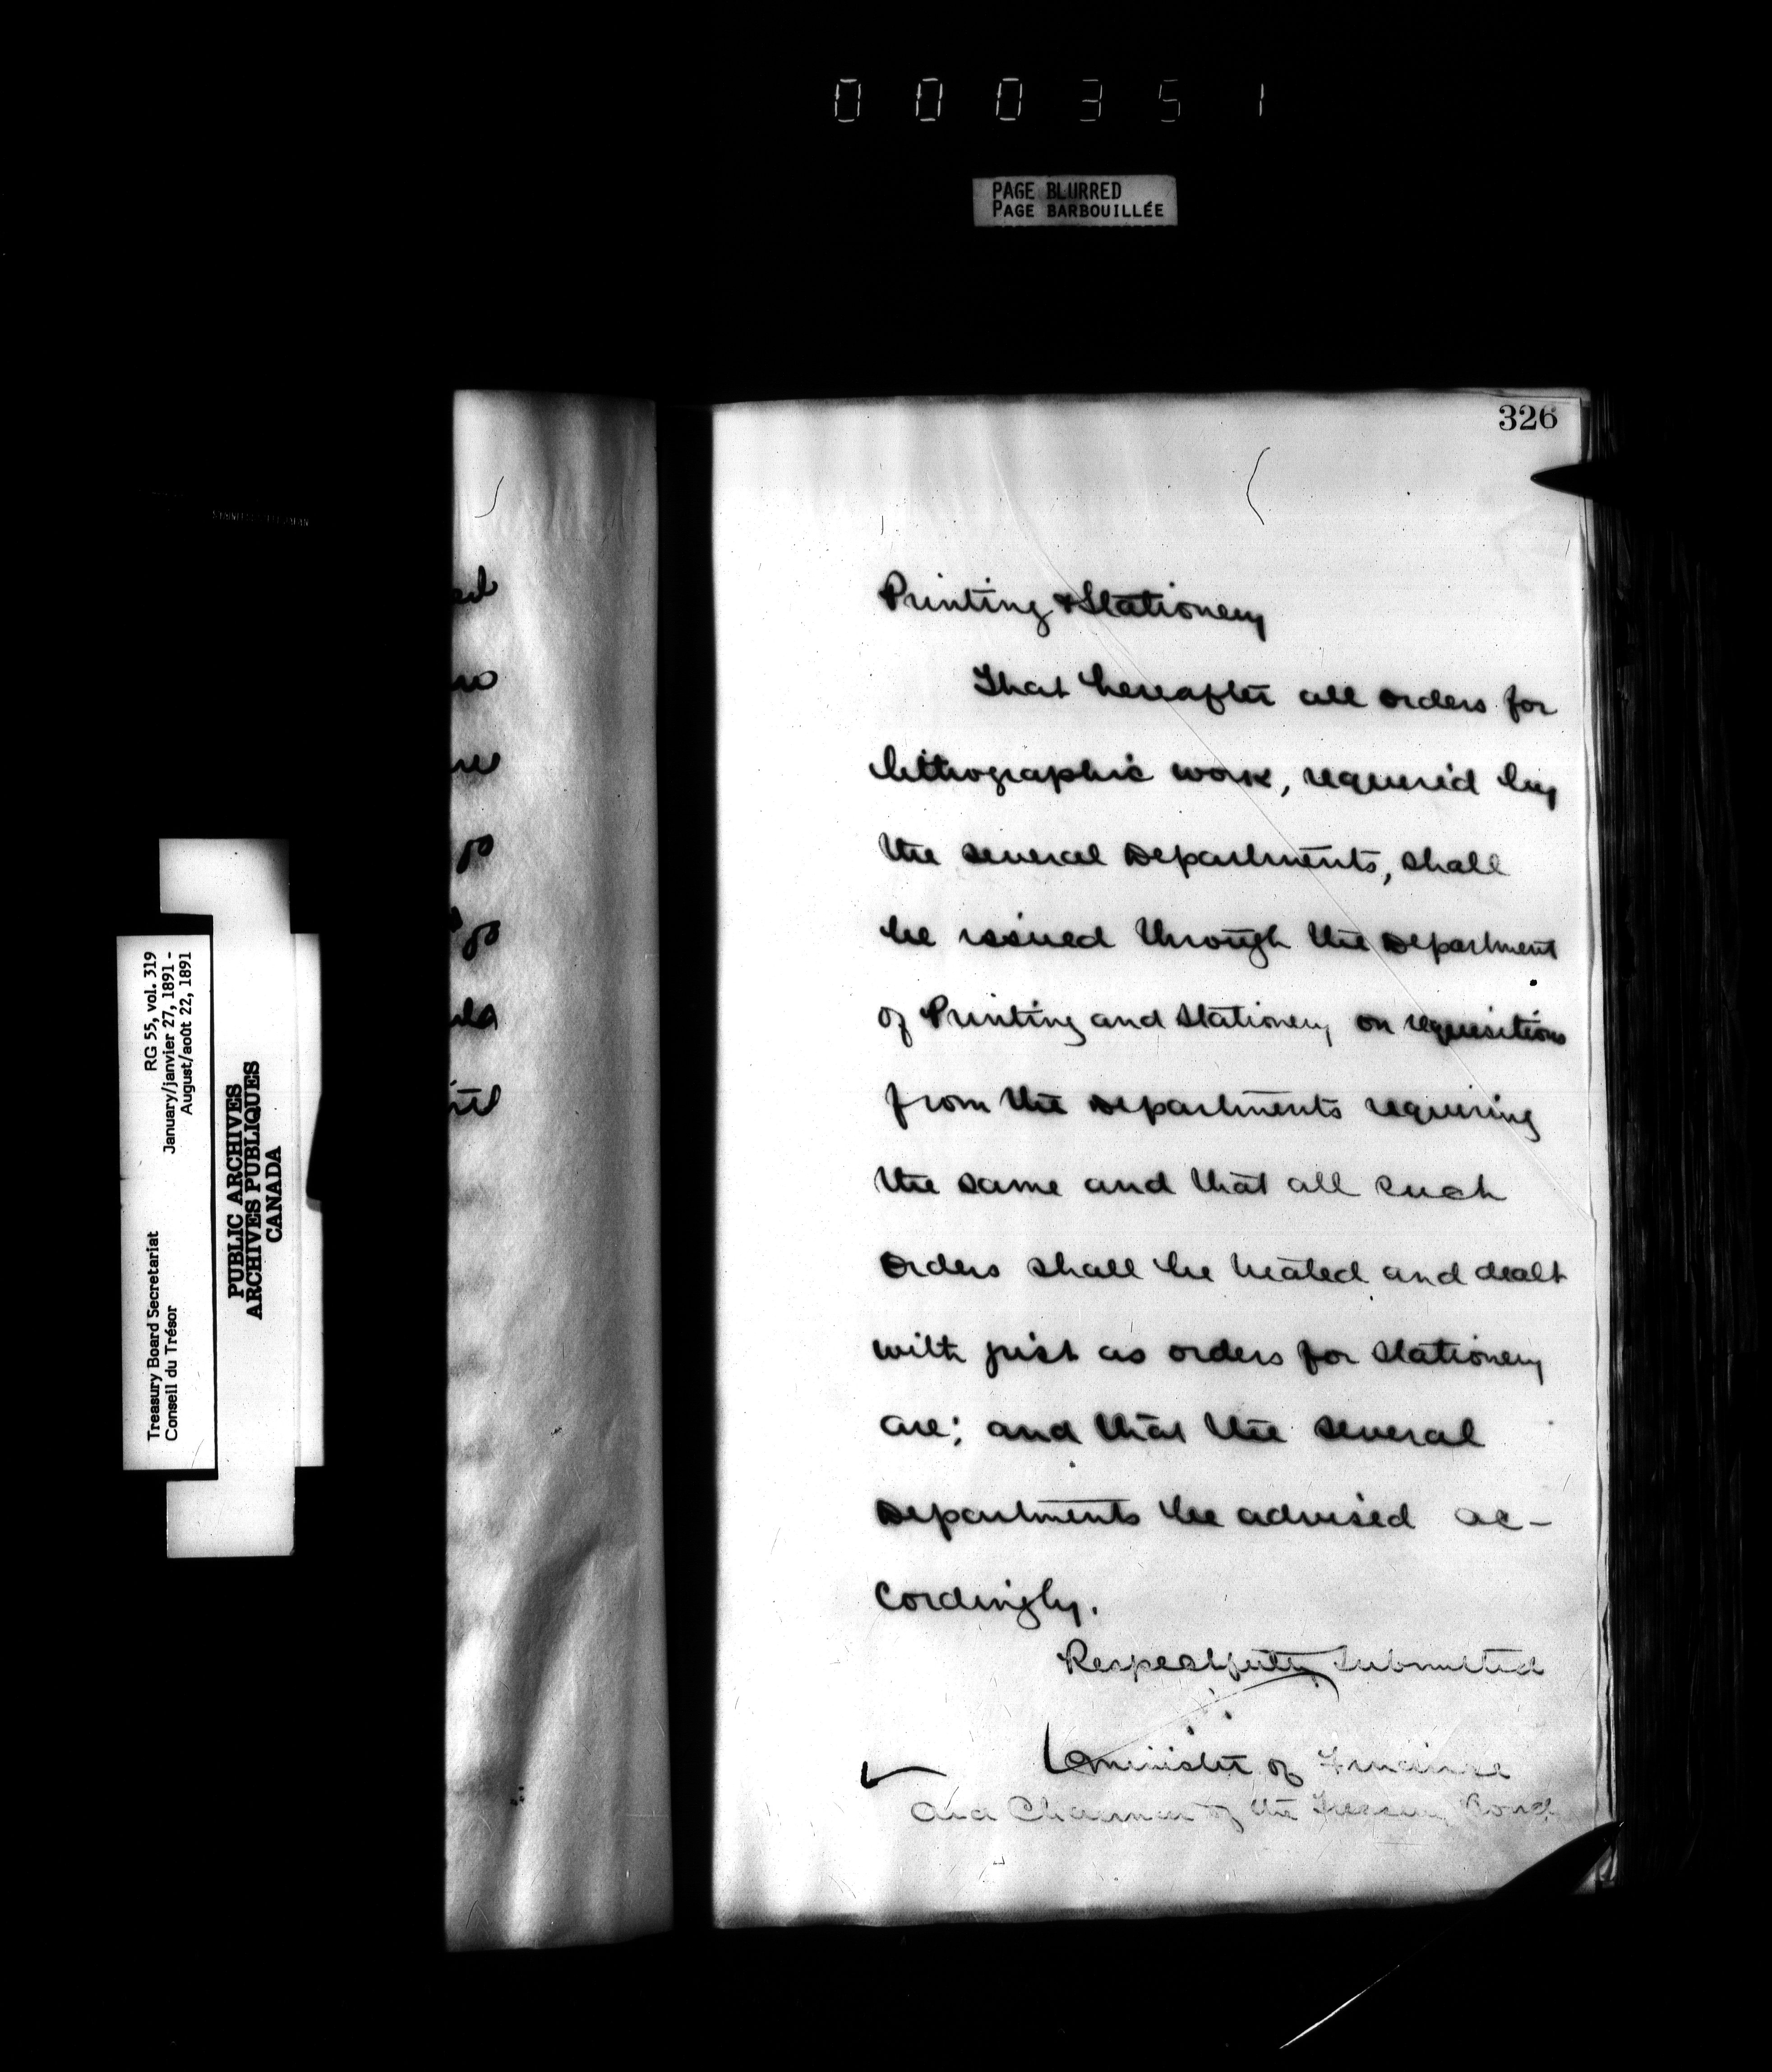 000351
PAGE BLURRED
PAGE BARBOUILLÉE
326
Printing & Stationery
That hereafter all orders for
lithographic work, required by
the several Departments, shall
be issued through the Department
of Printing and Stationery on requisitions
from the Departments requiring
the same and that all such
orders shall be treated and dealt
with just as orders for Stationery
are; and that the several
Departments be advised ac-
cordingly.
Respectfully submitted
Minister of Finance
and Chairman of the Treasury Board
Treasury Board Secretariat RG 55, vol. 319
Conseil du Trésor January/janvier 27, 1891 -
August/août 22, 1891
PUBLIC ARCHIVES
ARCHIVES PUBLIQUES
CANADA